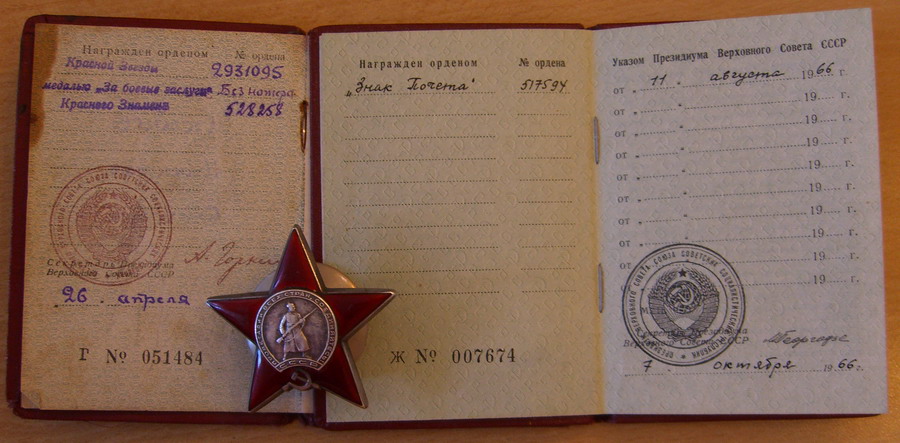 Награжден орденом № ордена
Красной Звезды 2931095
медалью „За боевые заслуги“ Без номера
Красного Знамени 528258
Секретарь Президиума
Верховного Совета СССР
А. Горкин
26 апреля
Г № 051484
Награжден орденом № ордена
„Знак Почета“ 517594
Ж № 007674
Указом Президиума Верховного Совета СССР
от " 11 " августа 1966 г.
от " " 19 г.
от " " 19 г.
от " " 19 г.
от " " 19 г.
от " " 19 г.
от " " 19 г.
от " " 19 г.
М.
Секретарь Президиума
Верховного Совета СССР
7 октября 1966 г.
ПРОЛЕТАРИИ ВСЕХ СТРАН, СОЕДИНЯЙТЕСЬ!
СССР